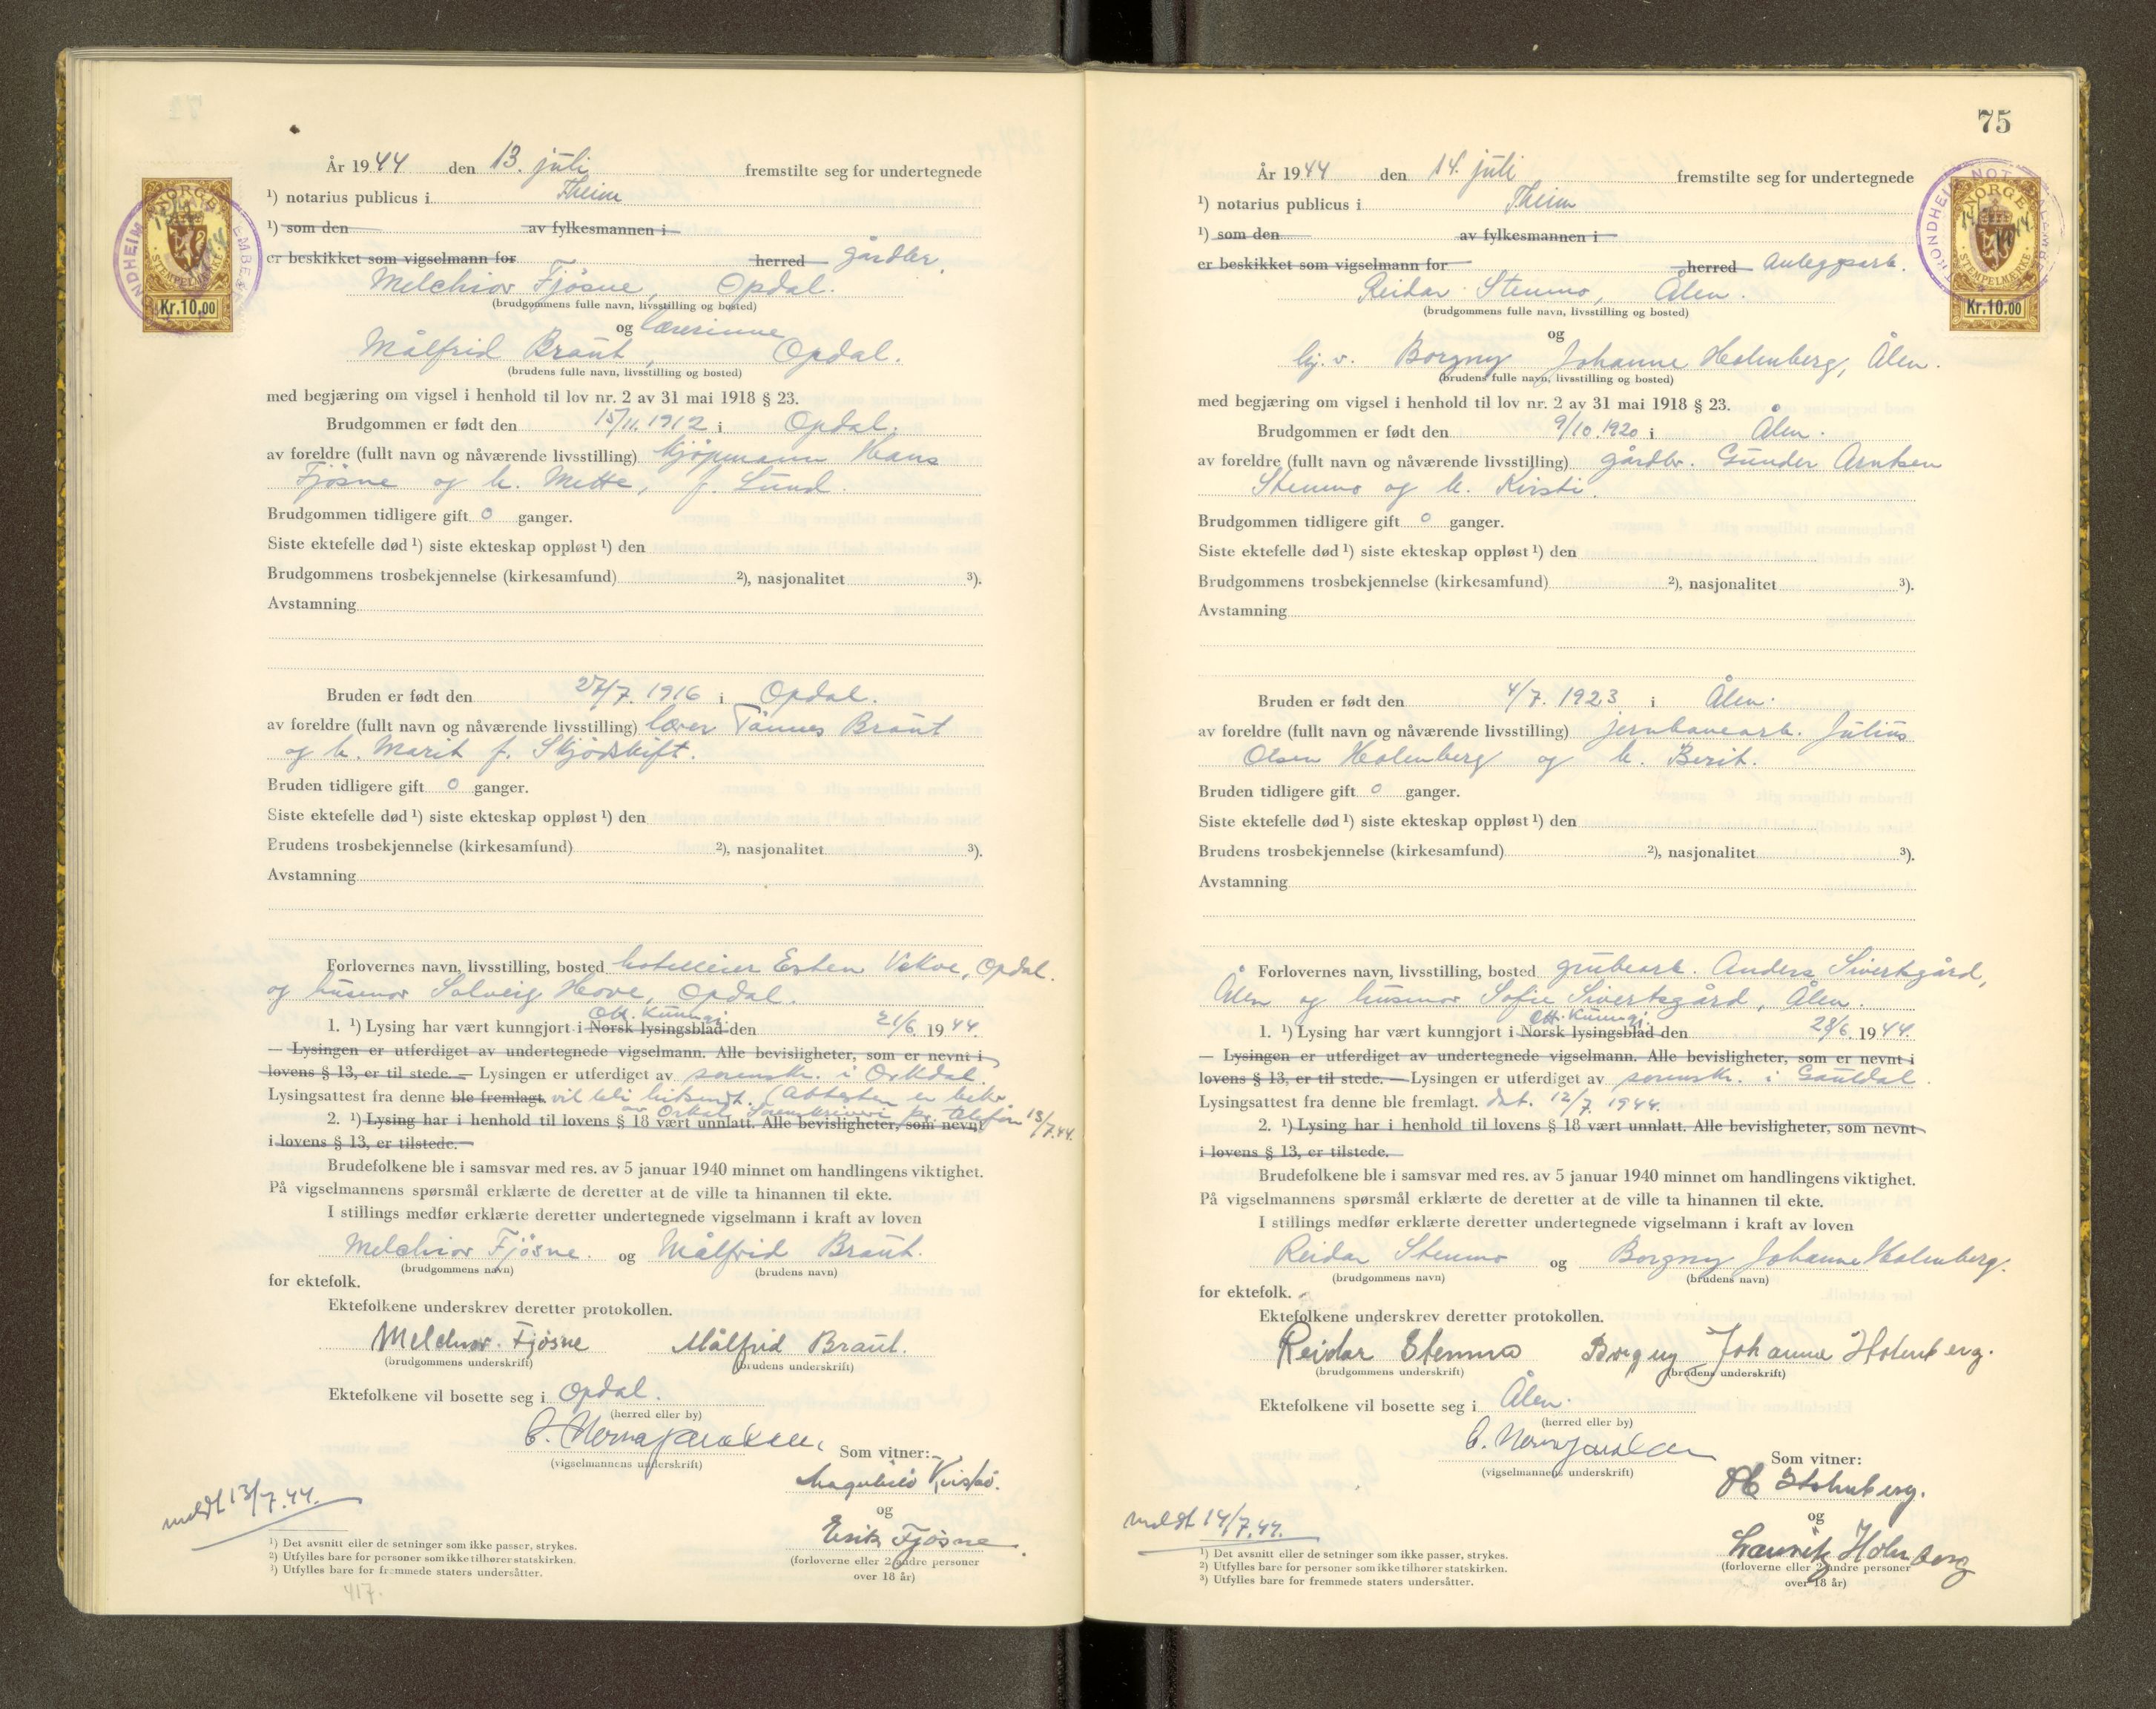 År 1944 den 13. juli fremstilte seg for undertegnede
¹) notarius publicus i Theim
¹) som den av fylkesmannen i
er beskikket som vigselmann for herred gårdbr.
Melchior Fjösne, Opdal.
(brudgommens fulle navn, livsstilling og bosted)
og lærerinne
Målfrid Braut, Opdal.
(brudens fulle navn, livsstilling og bosted)
med begjæring om vigsel i henhold til lov nr. 2 av 31 mai 1918 § 23.
Brudgommen er født den 15/11. 1912 i Opdal.
av foreldre (fullt navn og nåværende livsstilling) kjöpmann Hans
Fjösne og h. Mette, f. Lund.
Brudgommen tidligere gift 0 ganger.
Siste ektefelle død ¹) siste ekteskap oppløst ¹) den
Brudgommens trosbekjennelse (kirkesamfund) ²), nasjonalitet ³).
Avstamning
Bruden er født den 27/7. 1916 i Opdal.
av foreldre (fullt navn og nåværende livsstilling) lærer Tönnes Braut
og h. Marit f. Skjödskift.
Bruden tidligere gift 0 ganger.
Siste ektefelle død ¹) siste ekteskap oppløst ¹) den
Brudens trosbekjennelse (kirkesamfund) ²), nasjonalitet ³).
Avstamning
Forlovernes navn, livsstilling, bosted hotelleier Esten Vekve, Opdal.
og husmor Solveig Hove, Opdal.
Off. Kunngj.
1. ¹) Lysing har vært kunngjort i Norsk lysingsblad den 21/6. 1944.
— Lysingen er utferdiget av undertegnede vigselmann. Alle bevisligheter, som er nevnt i
lovens § 13, er til stede. — Lysingen er utferdiget av sorenskr. i Orkdal.
Lysingsattest fra denne ble fremlagt. vil bli innsendt. (Attesten er bekr.
av Orkdal Sorenskriveri pr. telefon 13/7.44.
2. ¹) Lysing har i henhold til lovens § 18 vært unnlatt. Alle bevisligheter, som nevnt
i lovens § 13, er tilstede.—
Brudefolkene ble i samsvar med res. av 5 januar 1940 minnet om handlingens viktighet.
På vigselmannens spørsmål erklærte de deretter at de ville ta hinannen til ekte.
I stillings medfør erklærte deretter undertegnede vigselmann i kraft av loven
Melchior Fjösne. og Målfrid Braut.
(brudgommens navn) (brudens navn)
for ektefolk.
Ektefolkene underskrev deretter protokollen.
Melchior Fjösne Målfrid Braut.
(brudgommens underskrift) (brudens underskrift)
Ektefolkene vil bosette seg i Opdal.
(herred eller by)
(vigselmannens underskrift)
Som vitner:
og
Erik Fjøsne.
(forloverne eller 2 andre personer
over 18 år)
meldt 13/7.44.
¹) Det avsnitt eller de setninger som ikke passer, strykes.
²) Utfylles bare for personer som ikke tilhører statskirken.
³) Utfylles bare for fremmede staters undersåtter.
417.
NORGE
STEMPELMERKE
Kr.10.00
75
År 1944 den 14. juli fremstilte seg for undertegnede
¹) notarius publicus i Theim
¹) som den av fylkesmannen i
er beskikket som vigselmann for herred anleggsarb.
Reidar Stenmo, Ålen.
(brudgommens fulle navn, livsstilling og bosted)
og
hj. v. Borgny Johanne Holmberg, Ålen.
(brudens fulle navn, livsstilling og bosted)
med begjæring om vigsel i henhold til lov nr. 2 av 31 mai 1918 § 23.
Brudgommen er født den 9/10. 1920 i Ålen.
av foreldre (fullt navn og nåværende livsstilling) gårdbr. Gunder Arntsen
Stenmo og h. Kirsti.
Brudgommen tidligere gift 0 ganger.
Siste ektefelle død ¹) siste ekteskap oppløst ¹) den
Brudgommens trosbekjennelse (kirkesamfund) ²), nasjonalitet ³).
Avstamning
Bruden er født den 4/7. 1923 i Ålen.
av foreldre (fullt navn og nåværende livsstilling) jernbanearb. Julius
Olsen Holmberg og h. Berit.
Bruden tidligere gift 0 ganger.
Siste ektefelle død ¹) siste ekteskap oppløst ¹) den
Brudens trosbekjennelse (kirkesamfund) ²), nasjonalitet ³).
Avstamning
Forlovernes navn, livsstilling, bosted grubearb. Anders Sivertsgård,
Ålen og husmor Sofie Sivertsgård, Ålen.
Off. Kunngj.
1. ¹) Lysing har vært kunngjort i Norsk lysingsblad den 28/6. 1944.
— Lysingen er utferdiget av undertegnede vigselmann. Alle bevisligheter, som er nevnt i
lovens § 13, er til stede. — Lysingen er utferdiget av sorenskr. i Gauldal.
Lysingsattest fra denne ble fremlagt. dat. 12/7. 1944.
2. ¹) Lysing har i henhold til lovens § 18 vært unnlatt. Alle bevisligheter, som nevnt
i lovens § 13, er tilstede.
Brudefolkene ble i samsvar med res. av 5 januar 1940 minnet om handlingens viktighet.
På vigselmannens spørsmål erklærte de deretter at de ville ta hinannen til ekte.
I stillings medfør erklærte deretter undertegnede vigselmann i kraft av loven
Reidar Stenmo og Borgny Johanne Holmberg.
(brudgommens navn) (brudens navn)
for ektefolk.
Ektefolkene underskrev deretter protokollen.
Reidar Stenmo Borgny Johanne Holmberg.
(brudgommens underskrift) (brudens underskrift)
Ektefolkene vil bosette seg i Ålen.
(herred eller by)
(vigselmannens underskrift)
Som vitner:
Holmberg.
og
Lauritz Holmberg
(forloverne eller 2 andre personer
over 18 år)
meldt 14/7.44.
¹) Det avsnitt eller de setninger som ikke passer, strykes.
²) Utfylles bare for personer som ikke tilhører statskirken.
³) Utfylles bare for fremmede staters undersåtter.
NORGE
STEMPELMERKE
Kr.10.00